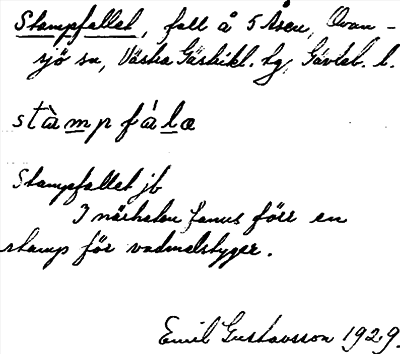 Stampfallet, fall å 5 Åsen, Ovan-
sjö sn, Västra Gästrikl. hg, Gävleb. l.
stàmpfálə
Stampfallet jb
I närheten fanns förr en
stamp för vadmalstyger.
Emil Gustavsson 1929.